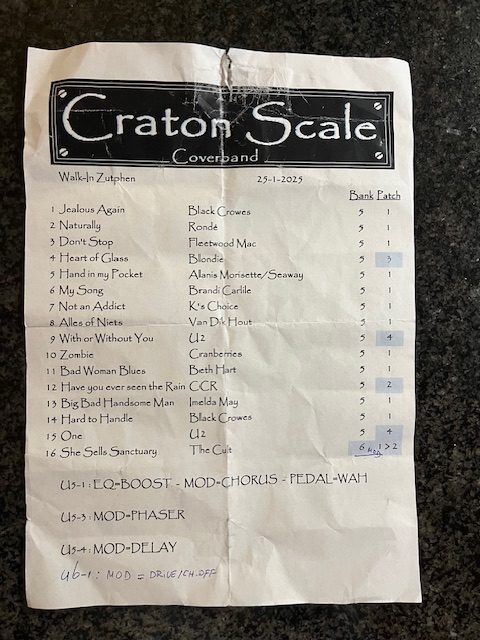 Craton Scale
Coverband
Walk-In Zutphen 25-1-2025
Bank Patch
1 Jealous Again Black Crowes 5 1
2 Naturally Rondé 5 1
3 Don't Stop Fleetwood Mac 5 1
4 Heart of Glass Bllondie 5 3
5 Hand in my Pocket Allanis Morisette/Seaway 5 1
6 My Song Brandi Carlile 5 1
7 Not an Addict K's Choice 5 1
8 Alles of Niets Van Dik Hout 5 1
9 With or Without You U2 5 4
10 Zombie Cranberries 5 1
11 Bad Woman Blues Beth Hart 5 1
12 Have you ever seen the Rain CCR 5 2
13 Big Bad Handsome Man Imelda May 5 1
14 Hard to Handle Bllack Crowes 5 1
15 One U2 5 4
16 She Sells Sanctuary The Cult 6 MOD 1 > 2
U5-1 : EQ=BOOST - MOD=CHORUS - PEDAL=WAH
U5-3 : MOD=PHASER
U5-4 : MOD=DELAY
U6-1 : MOD = DRIVE/CH.OFF